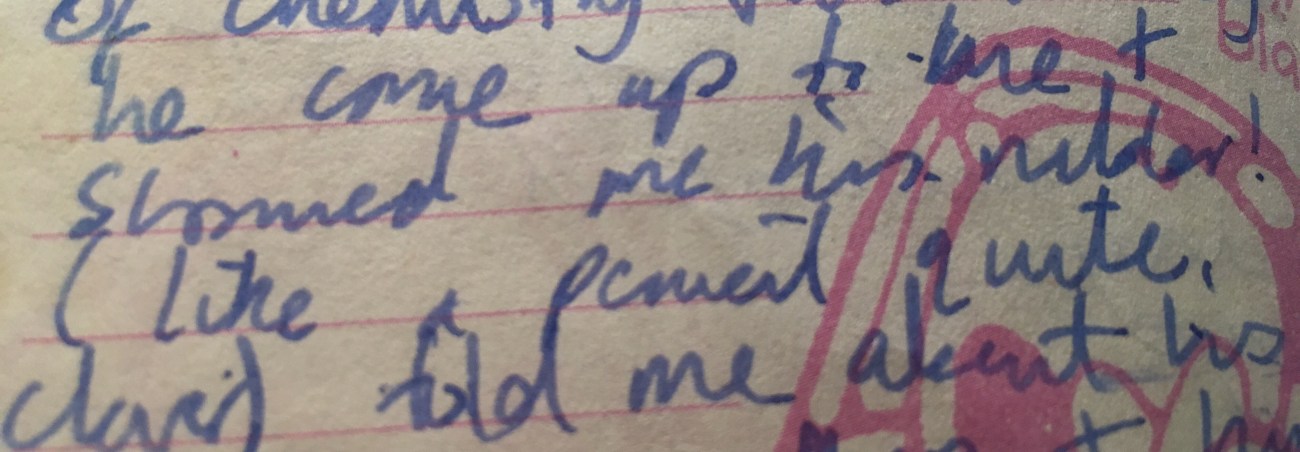 of chemistry
he come up to me +
showed me his rubber!
(like a pencil quite,
clever) told me about his
+